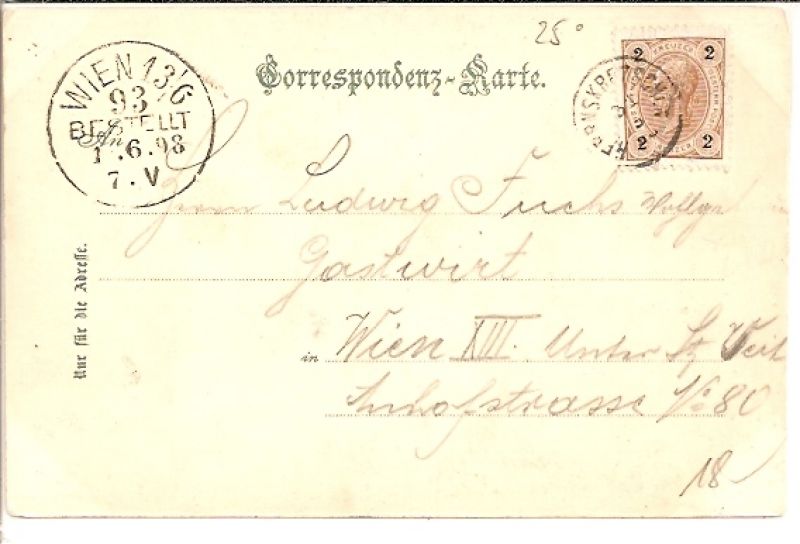 25°
Correspondenz-Karte.
2 KREUZER 2
2 2
HERRNSKRETSCHEN
WIEN 13/6
93
BESTELLT
.6.98
7.V
An
Herrn Ludwig Fuchs
Gastwirt
in Wien XIII. Unter St. Veit
No 80
Nur für die Adresse.
18-